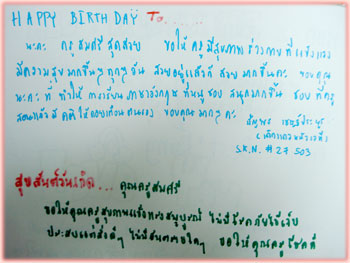 HAPPY BIRTHDAY To....
นะคะ ครู สมศรี สุดสวย ขอให้ ครู มีสุขภาพ ร่างกาย ที่ แข็งแรง
มีความสุข มากขึ้นๆ ทุกๆ วัน สวยอยู่แล้วก็ สวย มากขึ้นคะ ขอบคุณ
นะคะ ที่ ทำให้ การเรียน ภาษาอังกฤษ ที่หนู ชอบ สนุกมากขึ้น ชอบ ที่ครู
สอนแล้ว มี คติ ให้ คอยเตือน ตนเอง ขอบคุณ มากๆ คะ
S.K.N. #27 503
สุขสันต์วันเกิด... คุณครูสมศรี
ขอให้คุณครูสุขภาพแข็งแรงสมบูรณ์ ไม่มีโรคภัยไข้เจ็บ
ประสบแต่สิ่งดีๆ ไม่มีอันตรายใดๆ ขอให้คุณครูโชคดี